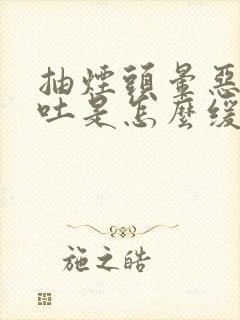 抽煙頭暈惡
吐是怎麼緩
施之皓